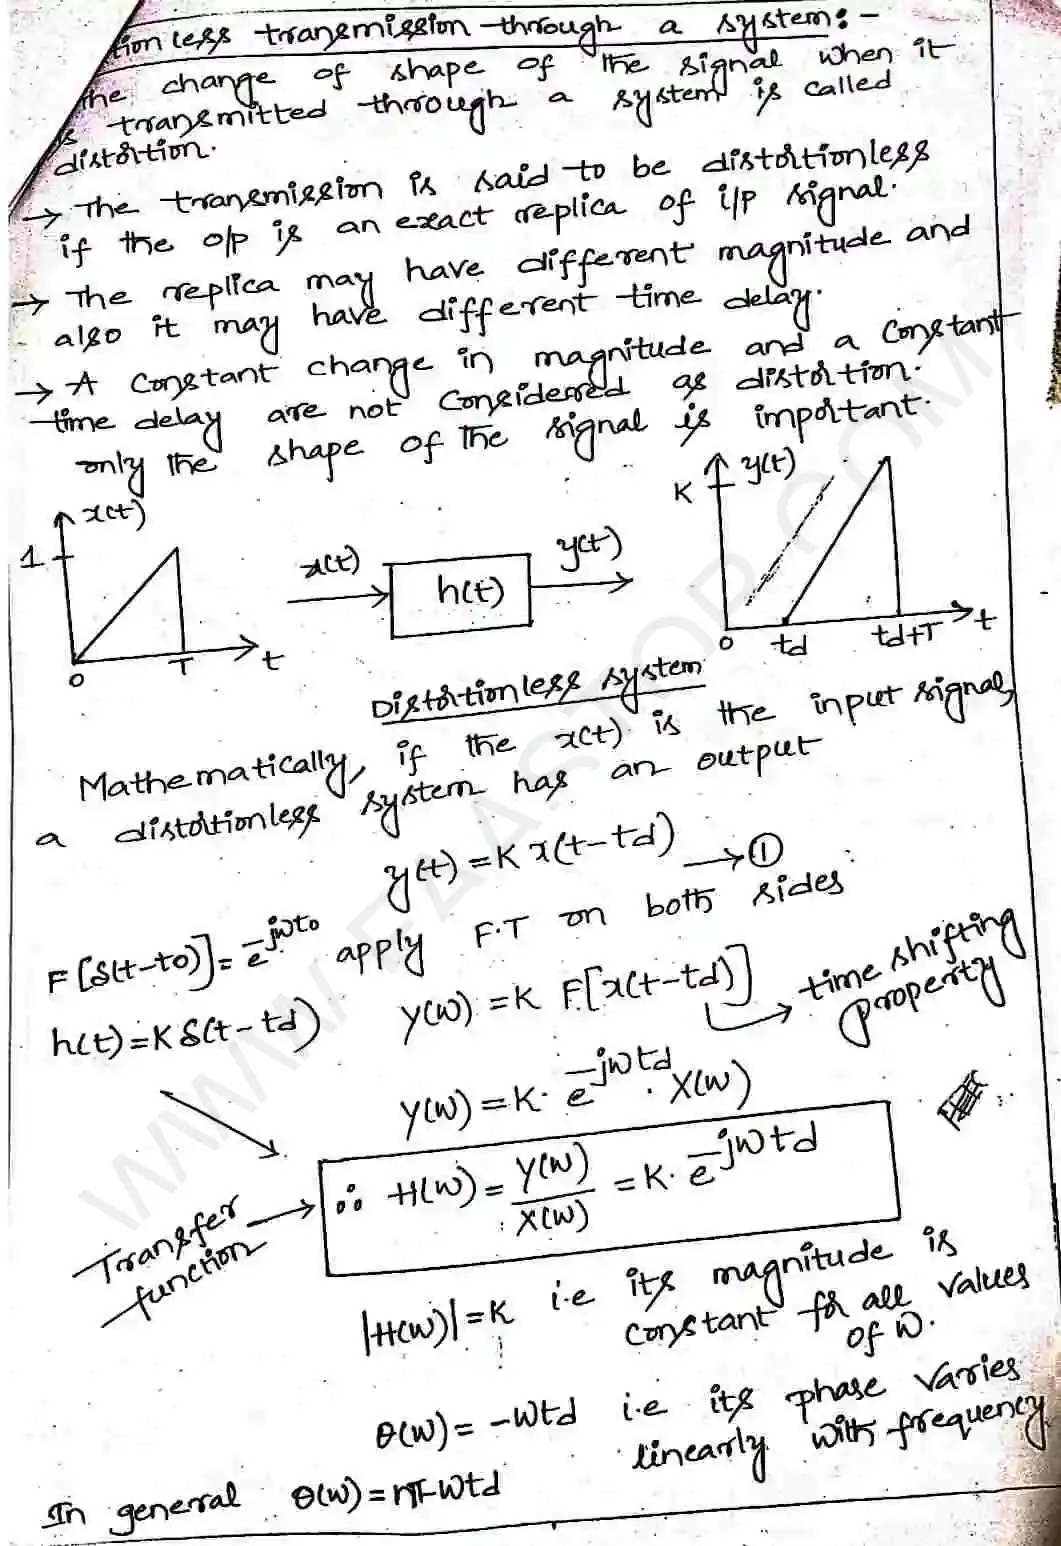 tionless transmission through a system:-
the change of shape of the signal when it
is transmitted through a system is called
distortion.
→ The transmission is said to be distortionless
if the o/p is an exact replica of i/p signal.
→ The replica may have different magnitude and
also it may have different time delay.
→ A constant change in magnitude and a constant
time delay are not considered as distortion.
only the shape of the signal is important.
x(t)
1
0
T
t
x(t)
h(t)
y(t)
K
y(t)
0
td
td+T
t
Distortionless system
Mathematically, if the x(t) is the input signal,
a distortionless system has an output
y(t) = K x(t-td) → ①
F[δ(t-to)] = e^-jωto apply F.T on both sides
h(t) = K δ(t-td) Y(ω) = K F[x(t-td)] → time shifting property
Y(ω) = K. e^-jωtd . X(ω)
Transfer function → ∴ H(ω) = Y(ω)/X(ω) = K. e^-jωtd
|H(ω)| = K i.e its magnitude is
constant for all values
of ω.
θ(ω) = -ωtd i.e its phase varies
linearly with frequency
In general θ(ω) = nπ-ωtd
WWW.FAASTOP.COM